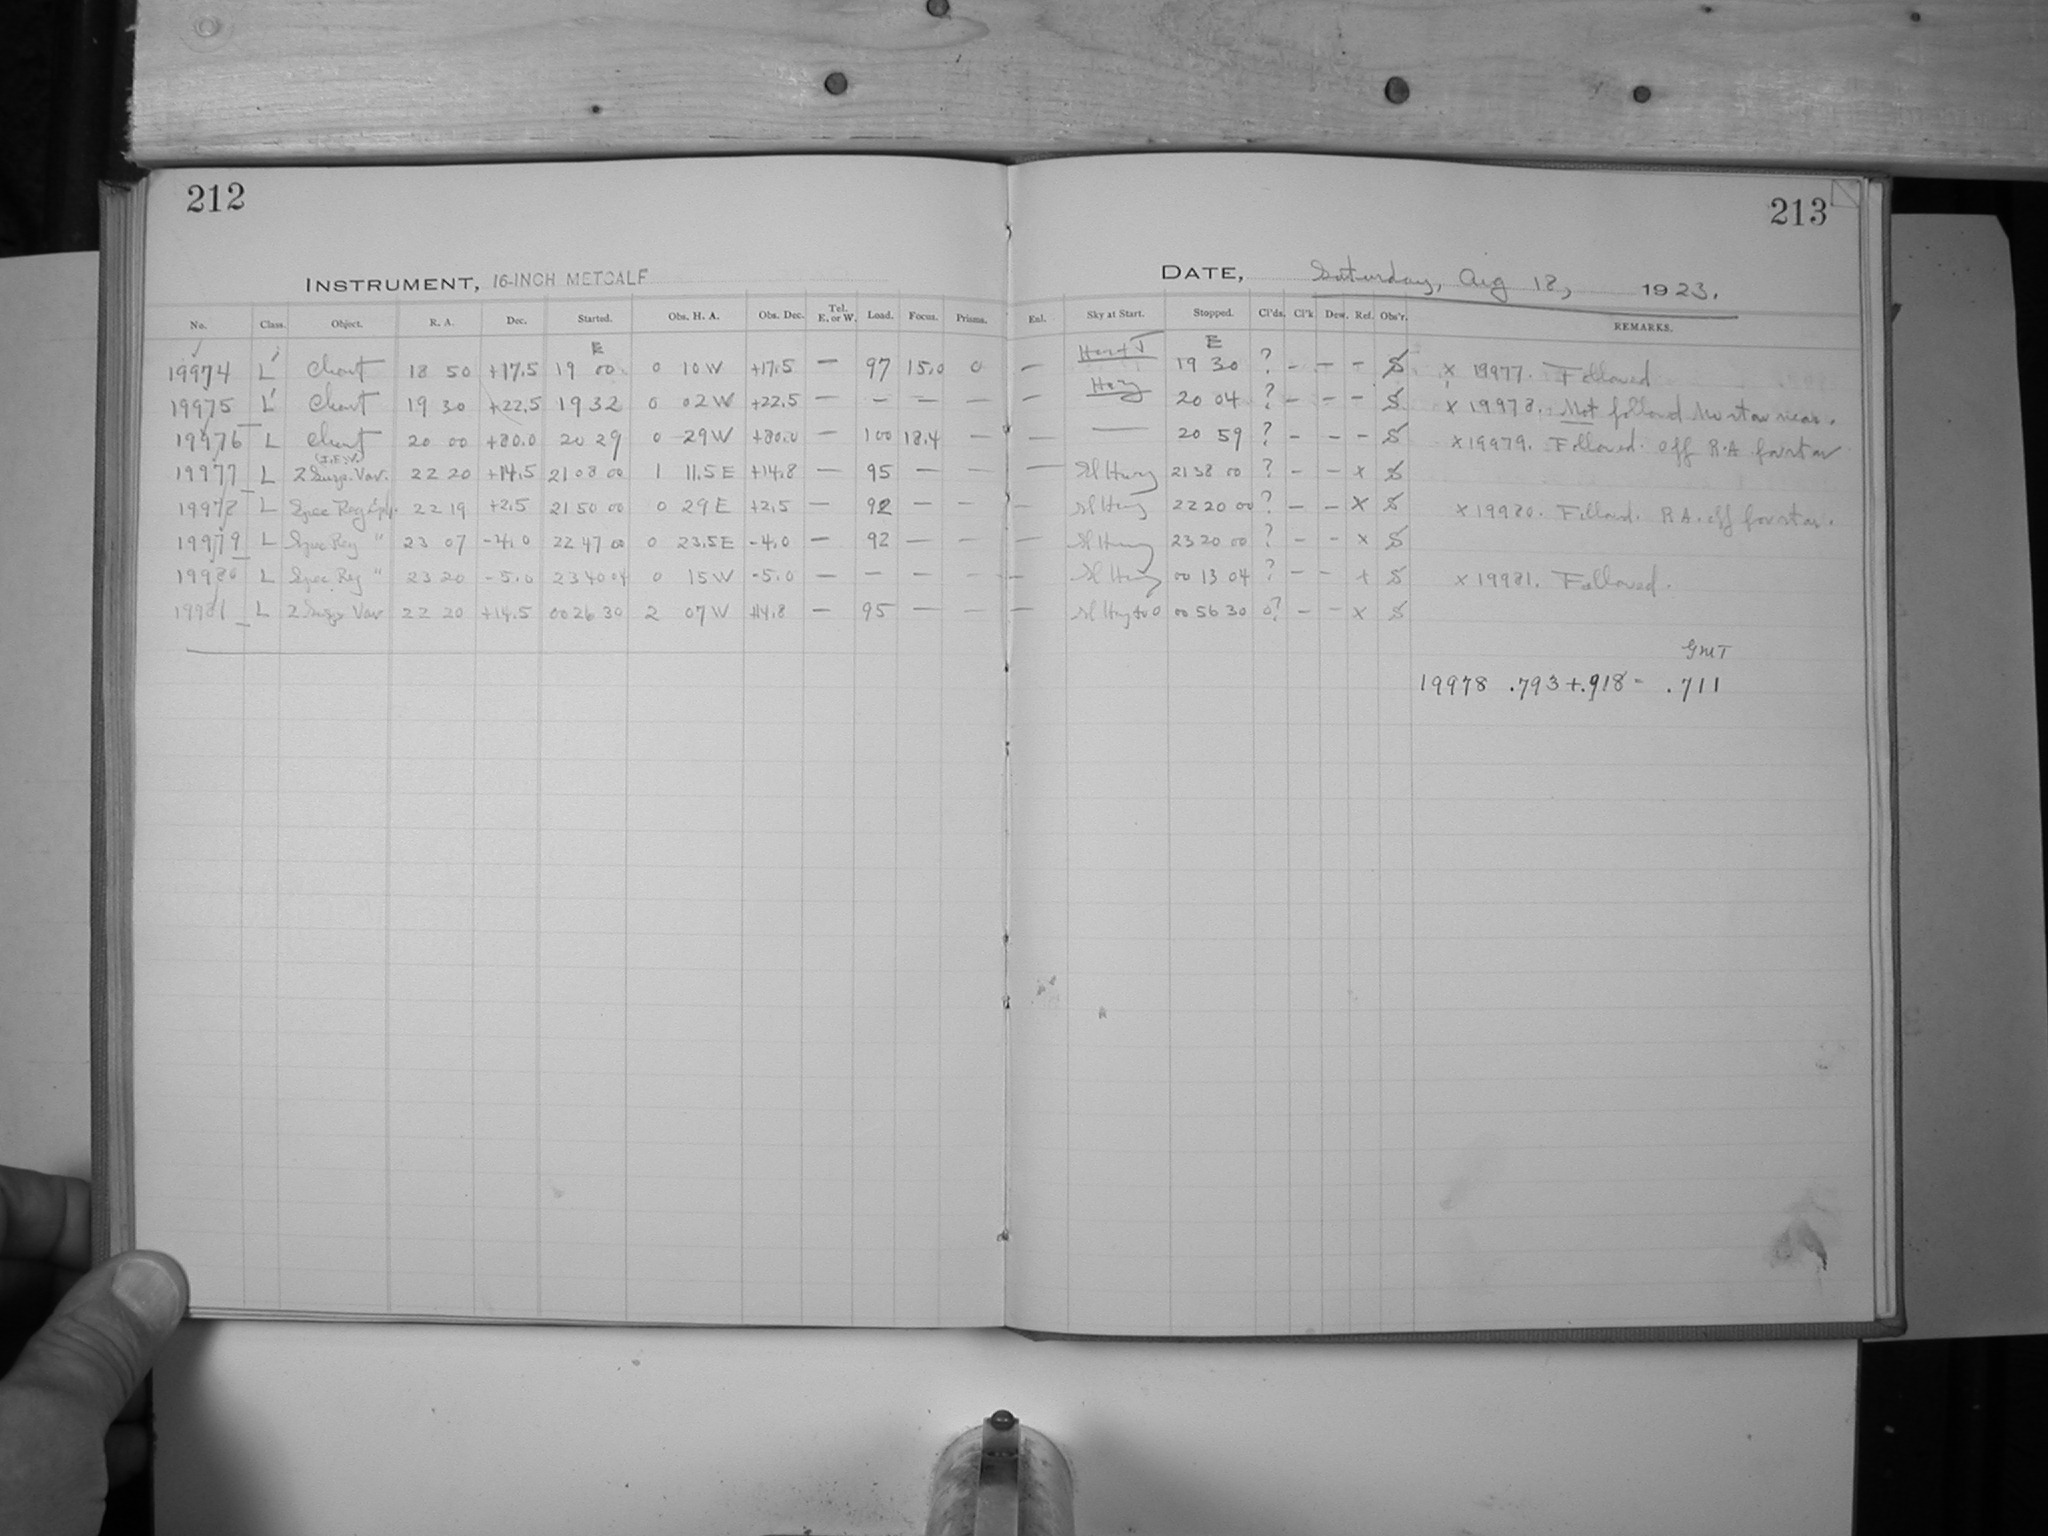 212
213
INSTRUMENT, 16-INCH METCALF
DATE, Saturday, Aug 18, 1923.
No. Class. Object. R. A. Dec. Started. Obs. H. A. Obs. Dec. Tel. E. or W. Load. Focus. Prisms. Enl. Sky at Start. Stopped. Cl'ds. Cl'k Dew. Ref. Obs'r. REMARKS.
E E
19974 L' Chart 18 50 +17.5 19 00 0 10 W +17.5 — 97 15.0 0 — 19 30 ? – – – S x 19977. Followed
19975 L' Chart 19 30 +22.5 19 32 0 02 W +22.5 — – – – — Hazy 20 04 ? – – – S x 19978. Not followed No star near.
19976 L Chart 20 00 +80.0 20 29 0 29 W +80.0 — 100 18.4 — — — 20 59 ? – – – S x 19979. Followed. Off R.A. for star
19977 L 2 Susp. Var. 22 20 +14.5 21 08 00 1 11.5 E +14.8 — 95 — — — Sl Hazy 21 38 00 ? – – x S
19978 L Spec Reg 22 19 +2.5 21 50 00 0 29 E +2.5 — 92 — — — Sl Hazy 22 20 00 ? – – x S x 19980. Followed. R.A. off for star.
19979 L Spec Reg " 23 07 -4.0 22 47 00 0 23.5 E -4.0 — 92 — — — Sl Hazy 23 20 00 ? – – x S
19980 L Spec. Reg " 23 20 -5.0 23 40 04 0 15 W -5.0 — – – – — Sl Hazy 00 13 04 ? – – x S x 19981. Followed.
19981 L 2 Susp Var 22 20 +14.5 00 26 30 2 07 W +14.8 — 95 — — — Sl Hazy to 0 00 56 30 0? – – x S
GMT
19978 .793+.918= .711